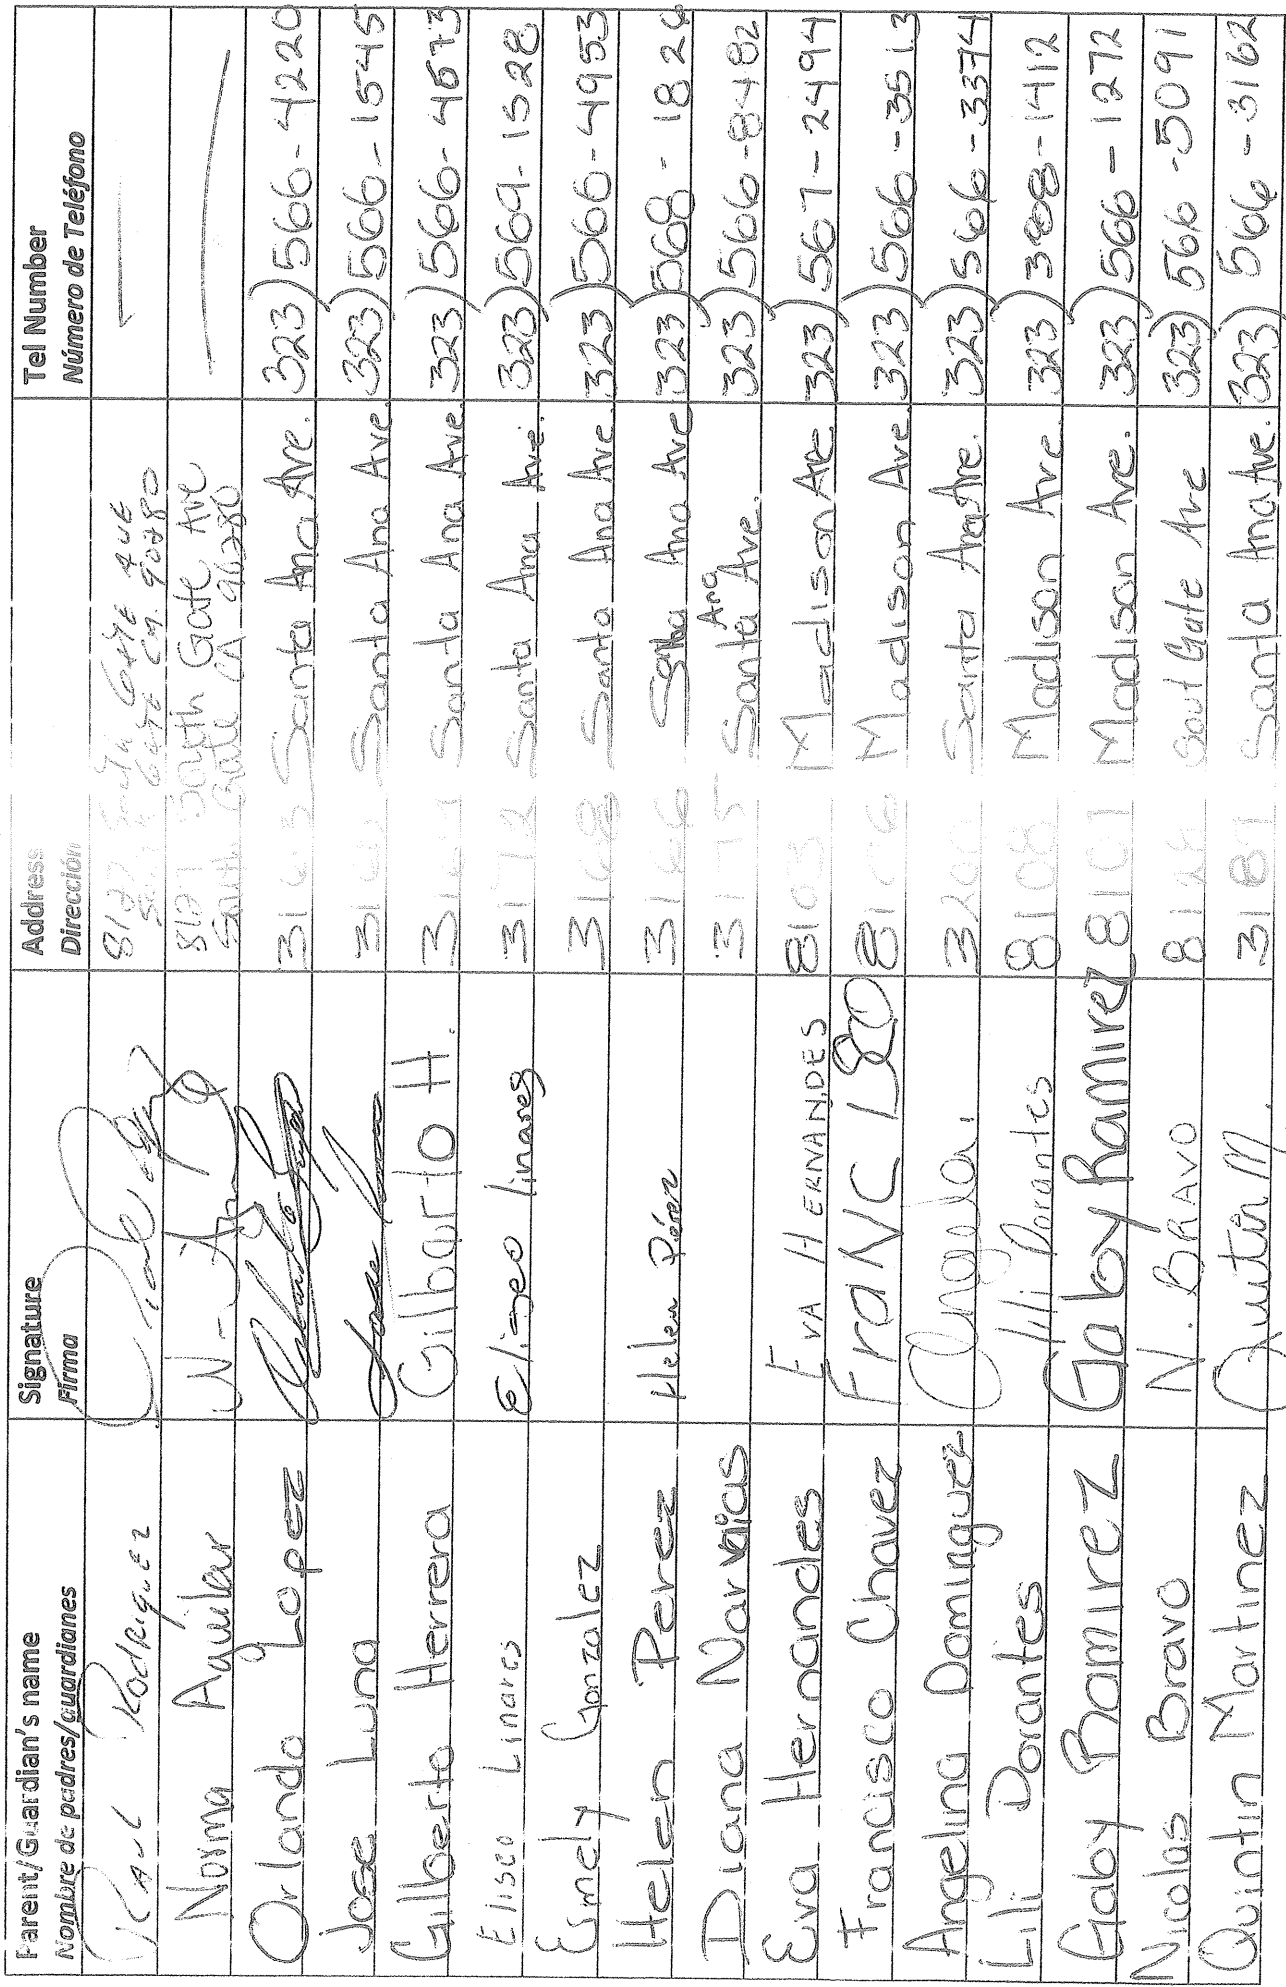 Parent/Guardian's name Signature Address Tel Number
Nombre de padres/guardianes Firma Dirección Número de Teléfono
Raul Rodriguez 8127 South Gate Ave
South Gate CA. 90280
Norma Aguilar 8127 South Gate Ave
South Gate CA 90280
Orlando Lopez Santa Ana Ave. 323) 566-4220
Jose Luna Jose Luna Santa Ana Ave. 323) 566-1545
Gilberto Herrera Gilbarto H. Santa Ana Ave. 323) 566-4673
Eliseo Linares Eliseo linares 3172 Santa Ana Ave. 323) 569-1528
Esmely Gonzalez 3168 Santa Ana Ave. 323) 566-4953
Helen Perez Helen Pérez 3166 Santa Ana Ave 323) 568-1826
Diana Narvaias 3175 Santa Ana Ave. 323) 566-8482
Eva Hernandes EVA HERNANDES 8103 Madison Ave 323) 567-2494
Francisco Chavez FraNC 8106 Madison Ave. 323) 566-3513
Angelina Dominguez Angela. 3200 Santa Ana Ave. 323) 566-3374
Lili Dorantes lili Dorantes 8108 Madison Ave. 323) 1412
Gaby Ramirez Gaby Ramirez 8107 Madison Ave. 323) 566-1272
Nicolas Bravo N. BRAVO 8126 Sout Gate Ave 323) 566-5091
Quintin Martinez Quintin M. 3189 Santa Ana Ave. 323) 566-3162